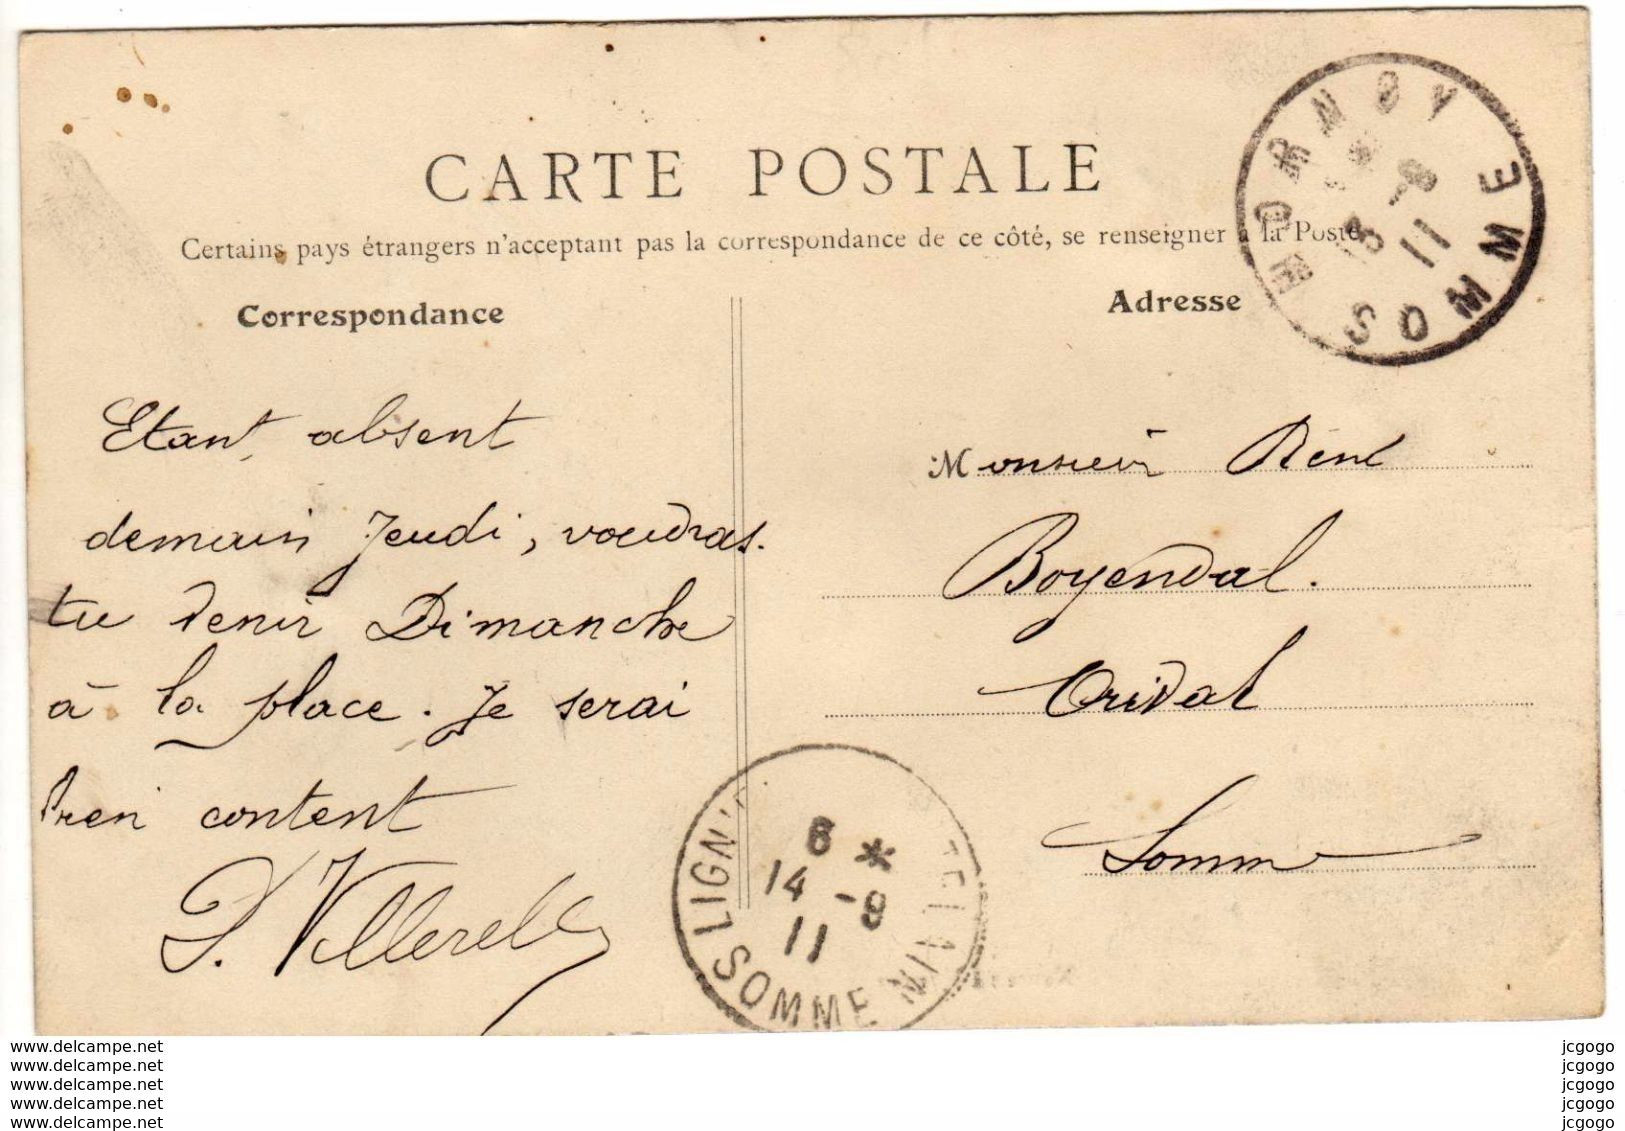 CARTE POSTALE
Certains pays étrangers n'acceptant pas la correspondance de ce côté, se renseigner à la Poste
Correspondance
Etant absent
demain Jeudi, voudras-
tu venir Dimanche
à la place. Je serai
bien content
Adresse
Monsieur René
Boyendal.
Orival
Somme
HORNOY
SOMME
11
6 *
14 -8
11
SOMME
www.delcampe.net
www.delcampe.net
www.delcampe.net
www.delcampe.net
www.delcampe.net
jcgogo
jcgogo
jcgogo
jcgogo
jcgogo